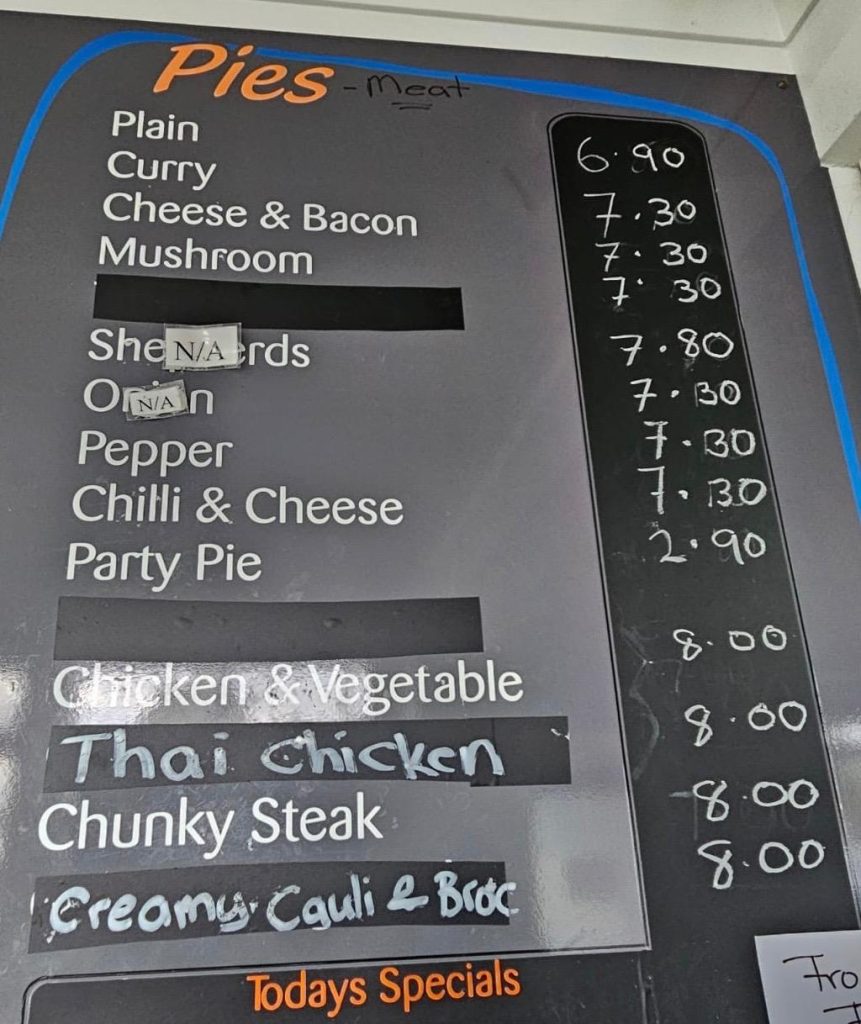 Pies - Meat
Plain 6.90
Curry 7.30
Cheese & Bacon 7.30
Mushroom 7.30
She N/A erds 7.80
On N/A n 7.30
Pepper 7.30
Chilli & Cheese 7.30
Party Pie 2.90
Chicken & Vegetable 8.00
Thai Chicken 8.00
Chunky Steak 8.00
Creamy Cauli & Broc 8.00
Todays Specials
Fro